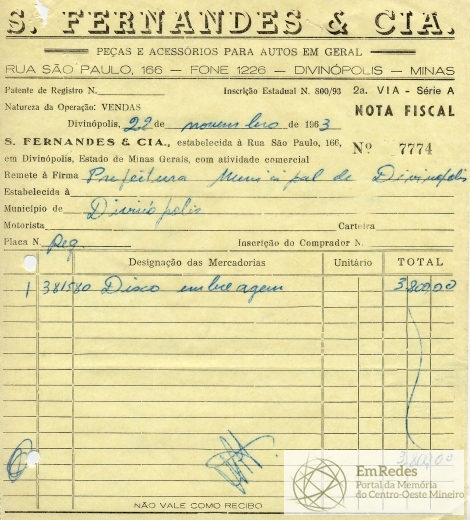 S. FERNANDES & CIA.
PEÇAS E ACESSÓRIOS PARA AUTOS EM GERAL
RUA SÃO PAULO, 166 — FONE 1226 — DIVINÓPOLIS — MINAS
Patente de Registro N. Inscrição Estadual N. 800/93 2a. VIA - Série A
Natureza da Operação: VENDAS NOTA FISCAL
Divinópolis, 22 de novembro de 1963
S. FERNANDES & CIA., estabelecida à Rua São Paulo, 166,
em Divinópolis, Estado de Minas Gerais, com atividade comercial Nº 7774
Remete à Firma Prefeitura Municipal de Divinópolis
Estabelecida à
Município de Divinópolis
Motorista Carteira
Placa N. Inscrição do Comprador N.
Designação das Mercadorias Unitário TOTAL
1 381580 Disco embreagem 3.800,00
EmRedes
Portal da Memória
do Centro-Oeste Mineiro
NÃO VALE COMO RECIBO